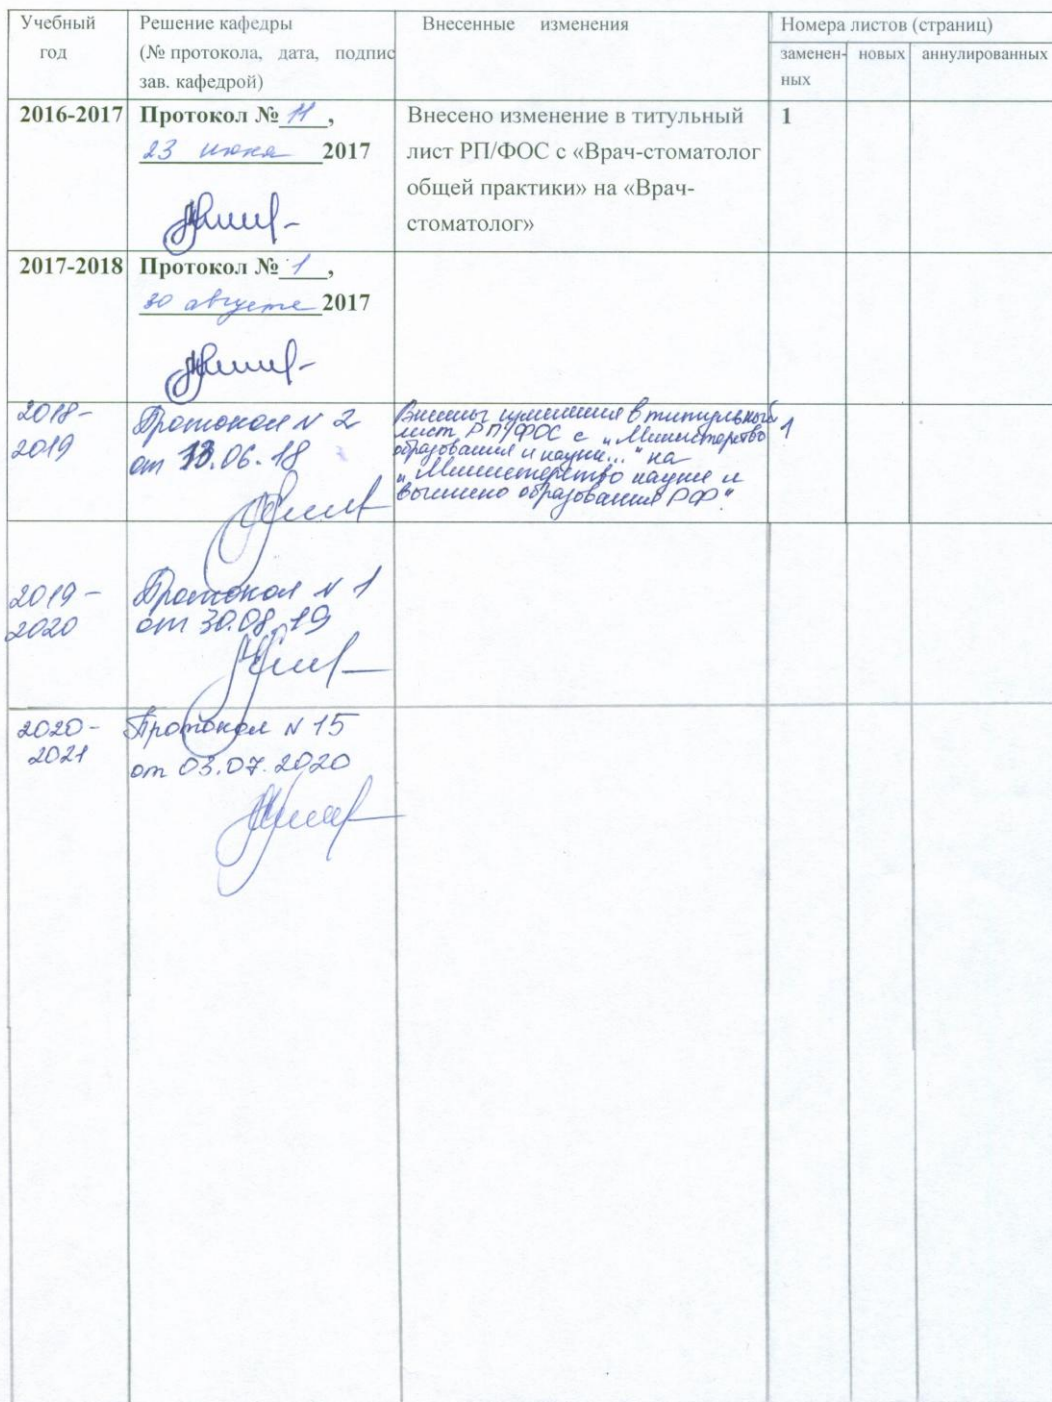 Учебный год
Решение кафедры
(№ протокола, дата, подпис
зав. кафедрой)
Внесенные изменения
Номера листов (страниц)
заменен-
ных
новых
аннулированных
2016-2017
Протокол № 11,
23 июня 2017
Внесено изменение в титульный
лист РП/ФОС с «Врач-стоматолог
общей практики» на «Врач-
стоматолог»
1
2017-2018
Протокол № 1,
30 августа 2017
2018-
2019
Протокол N 2
от 13.06.18
Внесены изменения в титульный
лист РП/ФОС с „Министерство
образования и науки..." на
„Министерство науки и
высшего образования РФ".
1
2019-
2020
Протокол N 1
от 30.08.19
2020-
2021
Протокол N 15
от 03.07.2020